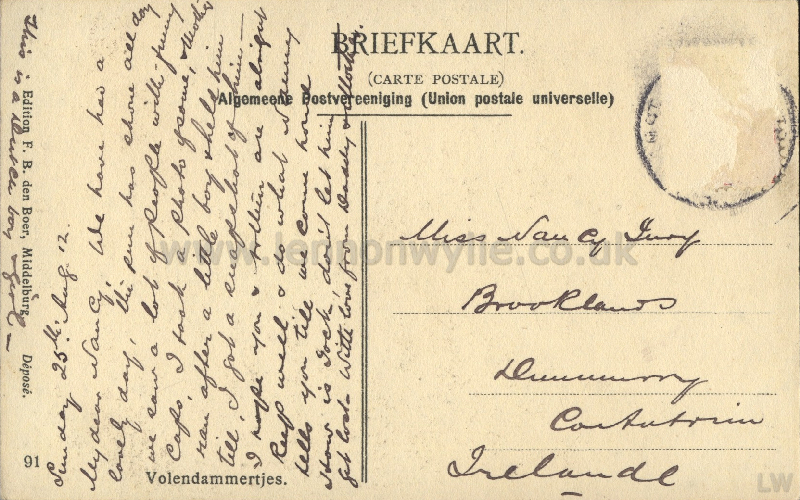 BRIEFKAART.
(CARTE POSTALE)
Algemeene Postvereeniging (Union postale universelle)
Miss Nancy Ivory
Brooklands
Dunmurry
Co Antrim
Ireland
This is a Dutch boy & girl —
Edition F. B. den Boer, Middelburg. Déposé.
91
Volendammertjes.
Sunday 25th Aug. 12.
My dear Nancy, We have had a
lovely day, the sun has shone all day
we saw a lot of people with funny
caps, I took a photo of some, & Mother
ran after a little boy & held him
till I got a snapshot of him —
I hope you & are alright
Keep well & do what Nanny
tells you till we come home
How is Jock, don't let him
get lost. With love from Daddy & Mother.
www.lennonwylie.co.uk
LW